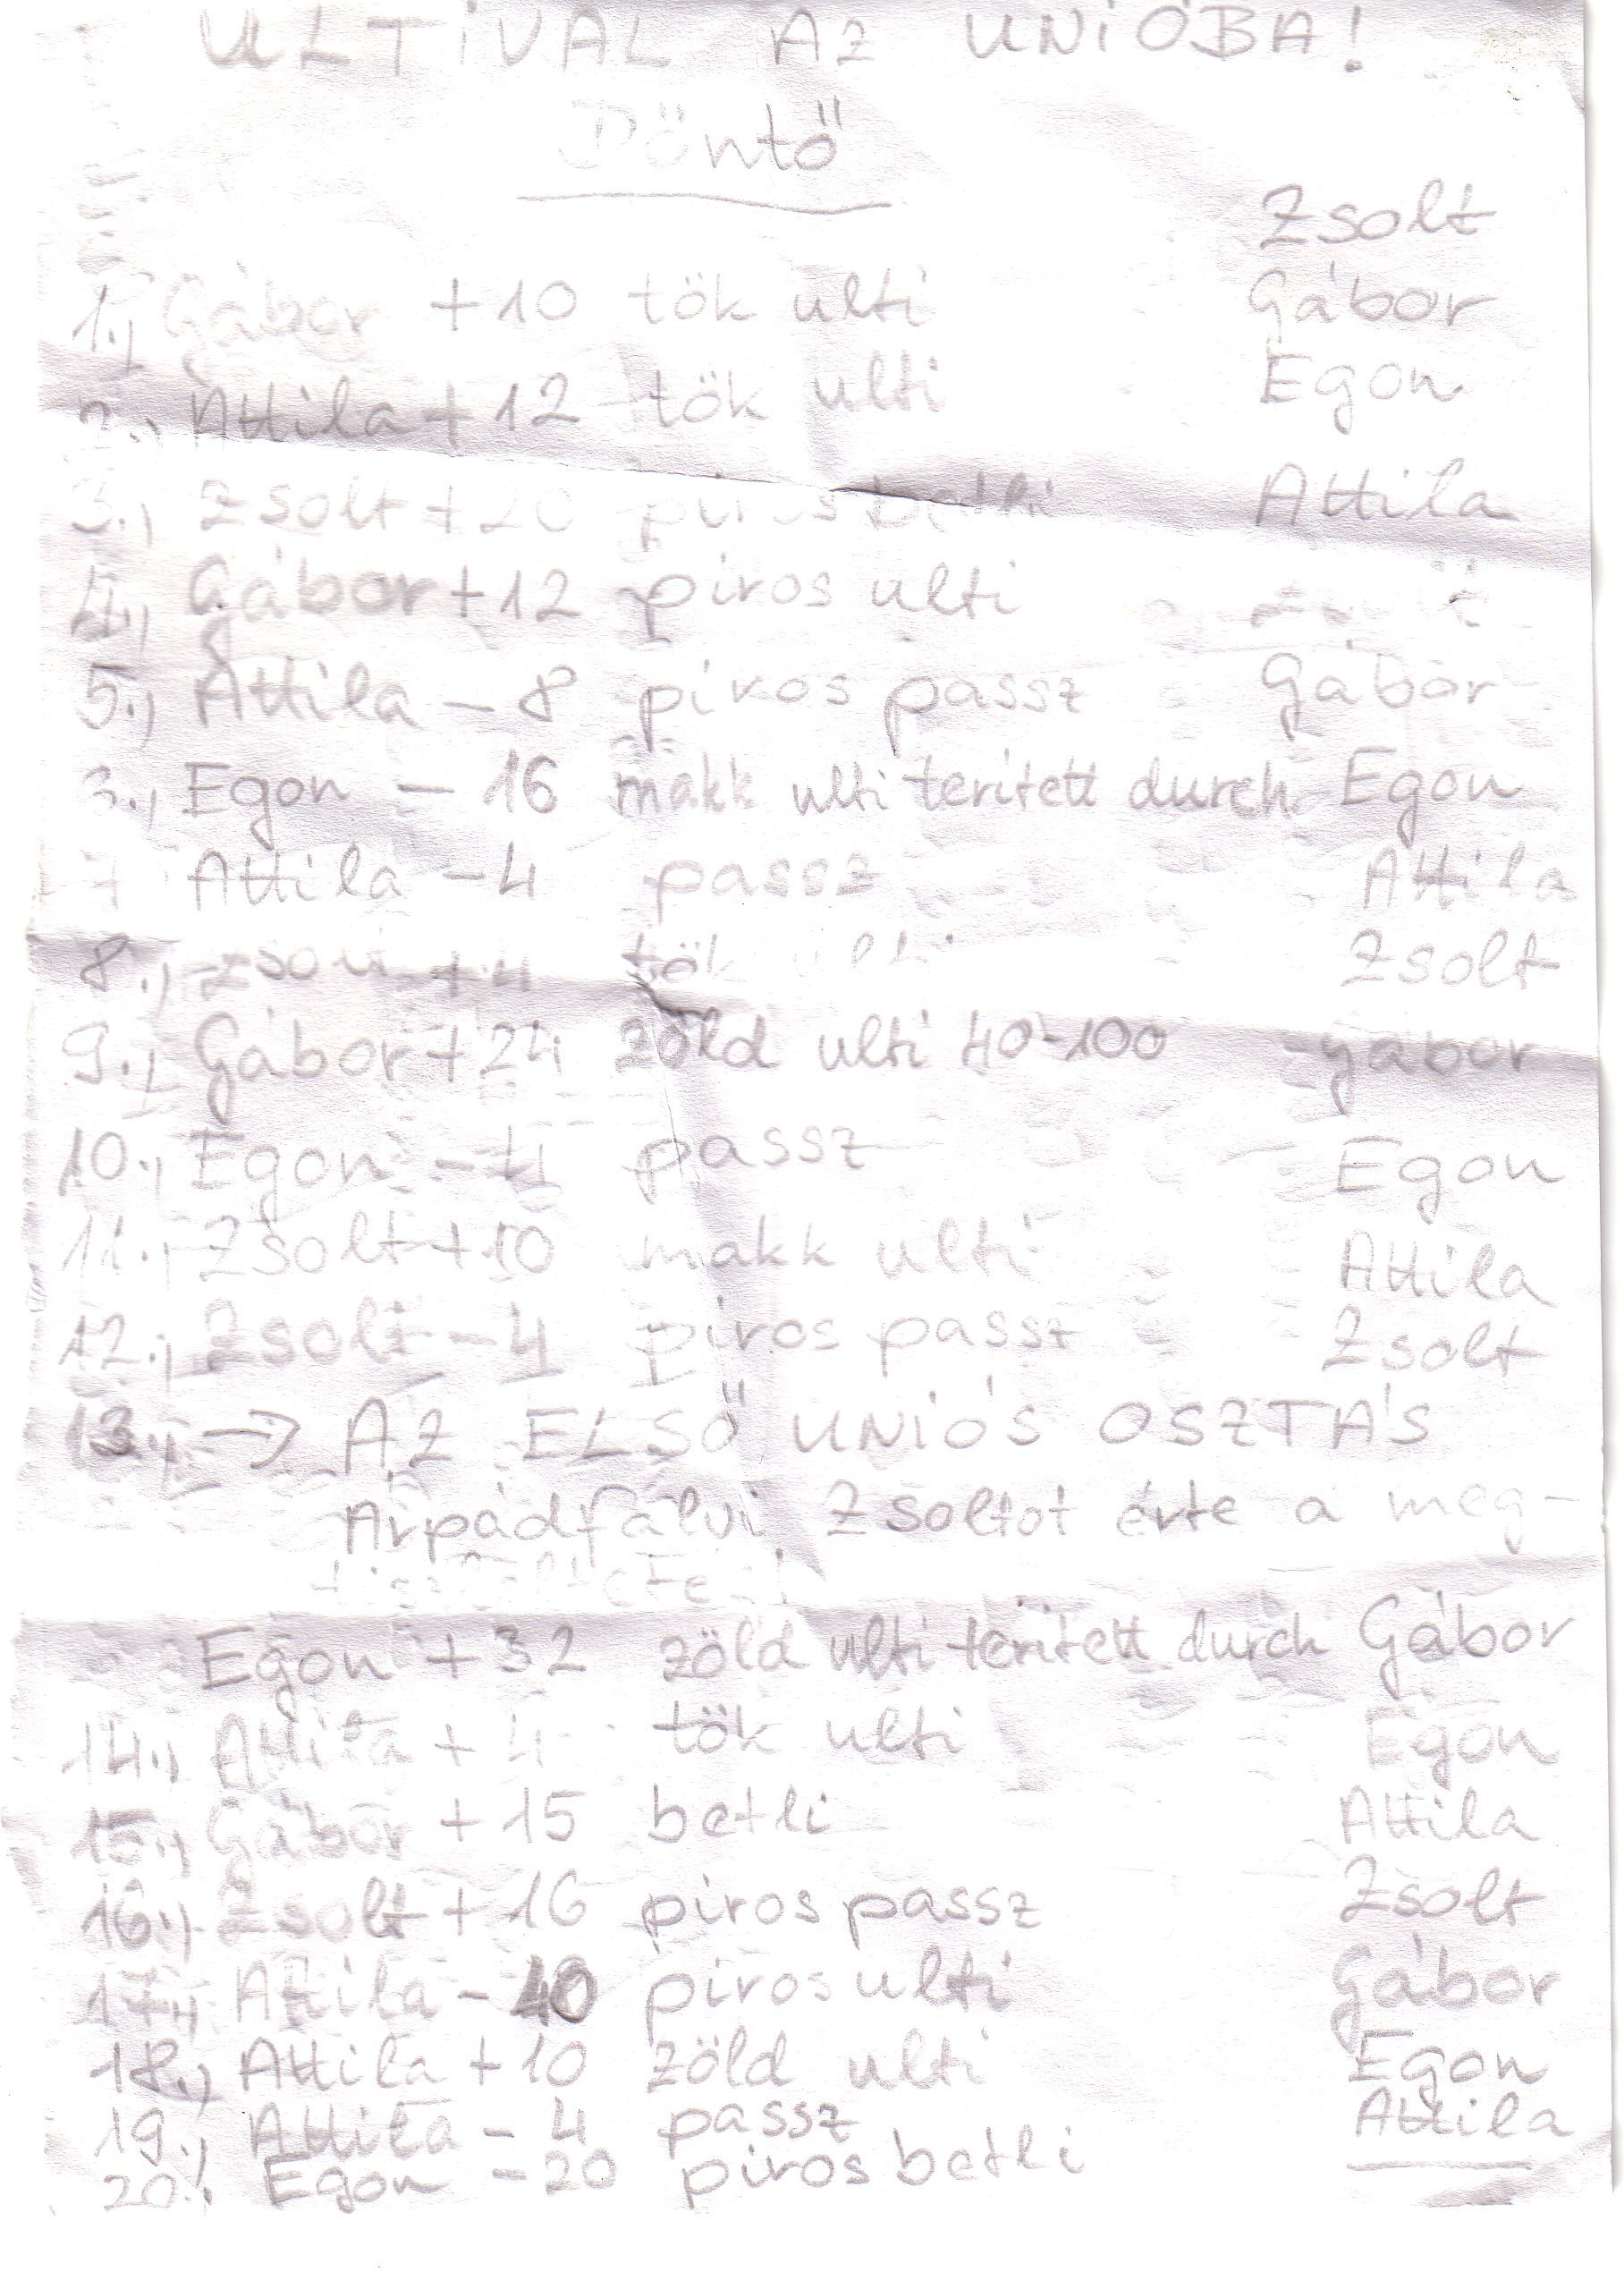 ULTIVAL AZ UNIÓBA!
Döntő
Zsolt
1., Gábor +10 tök ulti Gábor
2., Attila +12 tök ulti Egon
3., Zsolt +20 piros betli Attila
4., Gábor +12 piros ulti
5., Attila - 8 piros passz Gábor
3., Egon - 16 makk ulti terített durch Egon
7 Attila - 4 passz Attila
8., Zsolt +4 tök ulti Zsolt
9., Gábor +24 zöld ulti 40-100 Gábor
10., Egon - 4 passz Egon
11., Zsolt +10 makk ulti Attila
12., Zsolt - 4 piros passz Zsolt
13., → AZ ELSŐ UNIÓS OSZTÁS
Árpádfalvi Zsoltot érte a meg-
tiszteltetés!
Egon + 32 zöld ulti terített durch Gábor
14., Attila + 4 tök ulti Egon
15., Gábor + 15 betli Attila
16., Zsolt + 16 piros passz Zsolt
17., Attila - 40 piros ulti Gábor
18., Attila + 10 zöld ulti Egon
19., Attila - 4 passz Attila
20., Egon - 20 piros betli